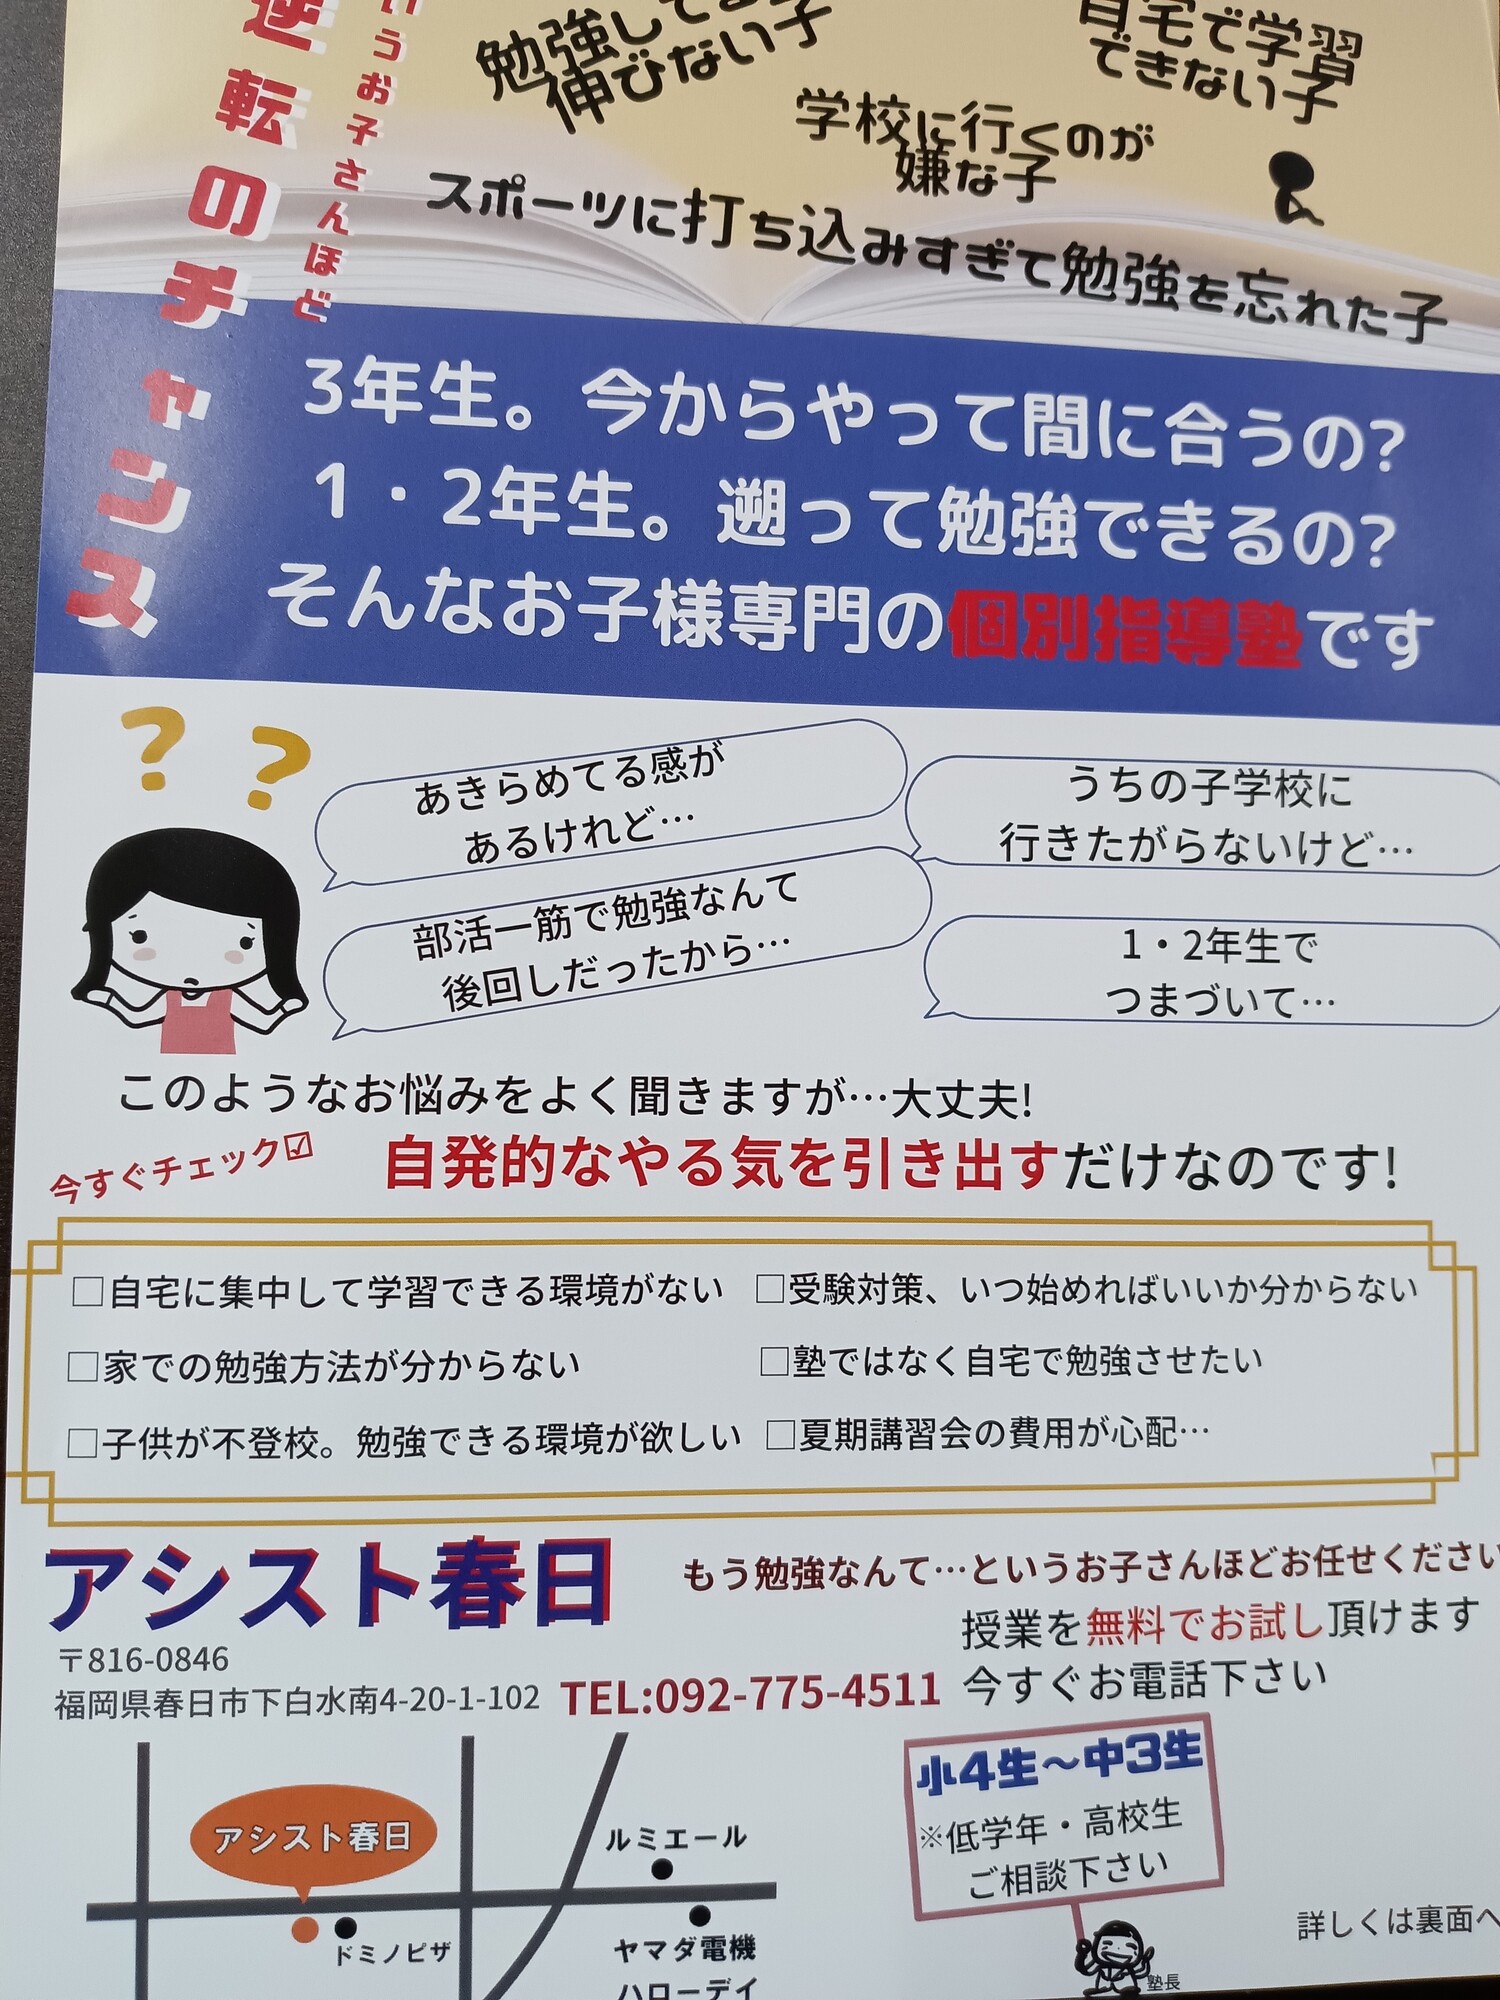 逆転のチャンス
うお子さんほど
勉強して
伸びない子
自宅で学習
できない子
学校に行くのが
嫌な子
スポーツに打ち込みすぎて勉強を忘れた子
3年生。今からやって間に合うの?
1・2年生。遡って勉強できるの?
そんなお子様専門の個別指導塾です
? ?
あきらめてる感が
あるけれど…
うちの子学校に
行きたがらないけど…
部活一筋で勉強なんて
後回しだったから…
1・2年生で
つまづいて…
このようなお悩みをよく聞きますが…大丈夫!
今すぐチェック☑
自発的なやる気を引き出すだけなのです!
□自宅に集中して学習できる環境がない
□受験対策、いつ始めればいいか分からない
□家での勉強方法が分からない
□塾ではなく自宅で勉強させたい
□子供が不登校。勉強できる環境が欲しい
□夏期講習会の費用が心配…
アシスト春日
もう勉強なんて…というお子さんほどお任せください
授業を無料でお試し頂けます
今すぐお電話下さい
〒816-0846
福岡県春日市下白水南4-20-1-102
TEL:092-775-4511
アシスト春日
ドミノピザ
ルミエール
ヤマダ電機
ハローデイ
小4生～中3生
※低学年・高校生
ご相談下さい
塾長
詳しくは裏面へ